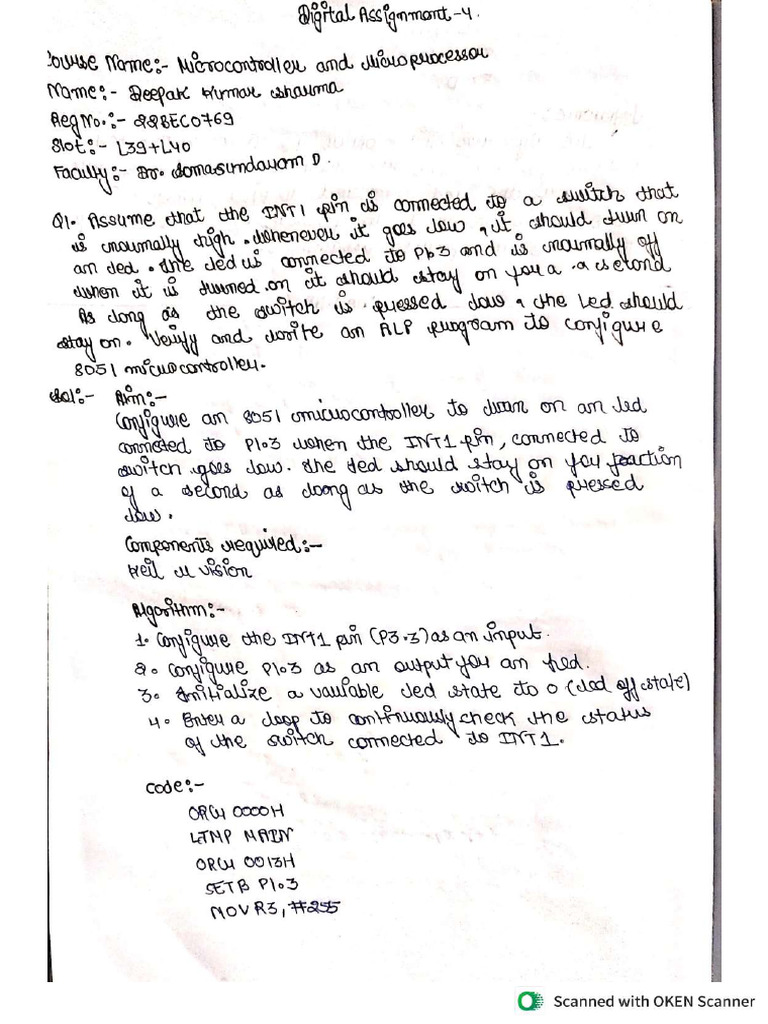 Digital Assignment-4.
Course Name:- Microcontroller and Microprocessor
Name:- Deepak Kumar Sharma
Reg No.:- 22BEC0769
Slot:- L39+L40
Faculty:- Dr. Somasundaram D.
Q1. Assume that the INT1 pin is connected to a switch that
is normally high. Whenever it goes low, it should turn on
an led. The led is connected to P1.3 and is normally off
when it is turned on it should stay on for a second
As long as the switch is pressed low, the led should
stay on. Verify and write an ALP program to configure
8051 microcontroller.
Sol:- Aim:-
Configure an 8051 microcontroller to turn on an led
connected to P1.3 when the INT1 pin, connected to
switch goes low. The led should stay on for fraction
of a second as long as the switch is pressed
low.
Components required:-
Keil u vision
Algorithm:-
1. Configure the INT1 pin (P3.3) as an input.
2. Configure P1.3 as an output for an led.
3. Initialize a variable led state to 0 (led off state)
4. Enter a loop to continuously check the status
of the switch connected to INT1.
Code:-
ORG 0000H
LJMP MAIN
ORG 0013H
SETB P1.3
MOV R3, #255
Scanned with OKEN Scanner